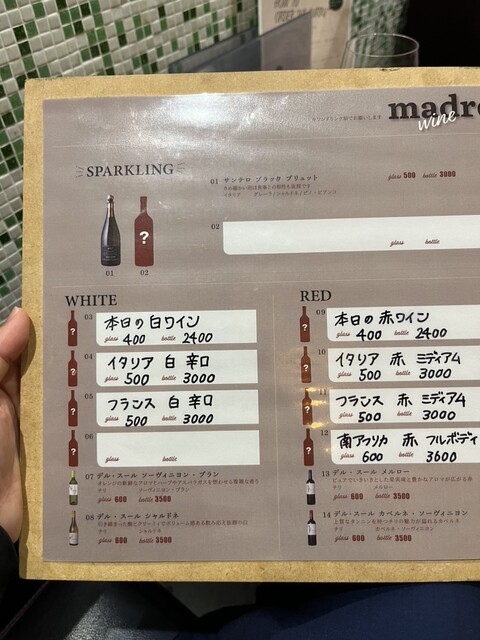 madre
wine
ワンドリンク制でお願いします
SPARKLING
01 サンテロ ブラック ブリュット
glass 500 bottle 3000
02
glass bottle
?
01
02
WHITE
03 本日の白ワイン
glass 400 bottle 2400
04 イタリア 白 辛口
500 3000
05 フランス 白 辛口
glass 500 bottle 3000
06
glass bottle
07 デル・スール ソーヴィニヨン・ブラン
チリ ソーヴィニヨン・ブラン
glass 600 bottle 3500
08 デル・スール シャルドネ
チリ シャルドネ
glass 600 bottle 3500
RED
09 本日の赤ワイン
glass 400 bottle 2400
10 イタリア 赤 ミディアム
glass 500 bottle 3000
11 フランス 赤 ミディアム
glass 500 bottle 3000
12 南アフリカ 赤 フルボディ
glass 600 bottle 3600
13 デル・スール メルロー
チリ メルロー
glass 600 bottle 3500
14 デル・スール カベルネ・ソーヴィニヨン
チリ カベルネ・ソーヴィニヨン
glass 600 bottle 3500